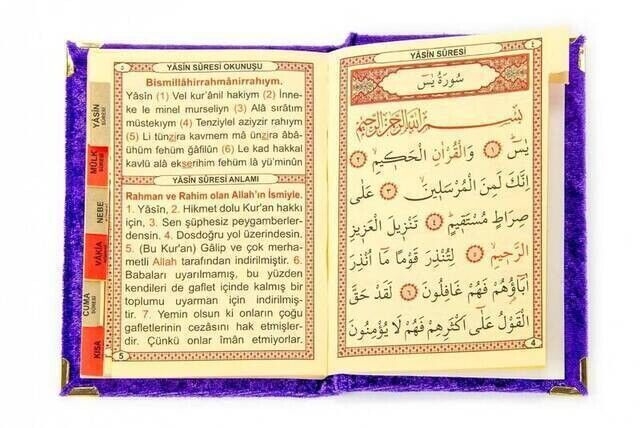 ٥
YÂSİN SÛRESİ OKUNUŞU
Bismillâhirrahmânirrahıym.
Yâsîn (1) Vel kur'ânil hakiym (2) İnne-
ke le minel murseliyn (3) Alâ sırâtım
müstekıym (4) Tenziylel aziyzir rahıym
(5) Li tünzira kavmem mâ ünzira âbâ-
ühüm fehüm ğâfilûn (6) Le kad hakkal
kavlü alâ ekserihim fehüm lâ yü'minûn
YÂSÎN SÛRESİ ANLAMI
Rahman ve Rahim olan Allah'ın İsmiyle.
1. Yâsîn, 2. Hikmet dolu Kur'an hakkı
için, 3. Sen şüphesiz peygamberler-
densin. 4. Dosdoğru yol üzerindesin.
5. (Bu Kur'an) Gâlip ve çok merha-
metli Allah tarafından indirilmiştir. 6.
Babaları uyarılmamış, bu yüzden
kendileri de gaflet içinde kalmış bir
toplumu uyarman için indirilmiş-
tir. 7. Yemin olsun ki onların çoğu
gafletlerinin cezasını hak etmişler-
dir. Çünkü onlar îmân etmiyorlar.
5
YÂSİN
SÛRESİ
MÜLK
SÛRESİ
NEBE
VÂKIA
CUMA
SÛRESİ
KISA
YÂSİN SÛRESİ
٤
سُورَةُ يٰسٓ
بِسْمِ اللّٰهِ الرَّحْمٰنِ الرَّحِيمِ
يٰسٓ ﴿١﴾ وَالْقُرْاٰنِ الْحَكٖيمِۙ ﴿٢﴾
اِنَّكَ لَمِنَ الْمُرْسَلٖينَۙ ﴿٣﴾ عَلٰى
صِرَاطٍ مُسْتَقٖيمٍۜ ﴿٤﴾ تَنْزٖيلَ الْعَزٖيزِ
الرَّحٖيمِۙ ﴿٥﴾ لِتُنْذِرَ قَوْمًا مَٓا اُنْذِرَ
اٰبَٓاؤُ۬هُمْ فَهُمْ غَافِلُونَ ﴿٦﴾ لَقَدْ حَقَّ
الْقَوْلُ عَلٰٓى اَكْثَرِهِمْ فَهُمْ لَا يُؤْمِنُونَ
4